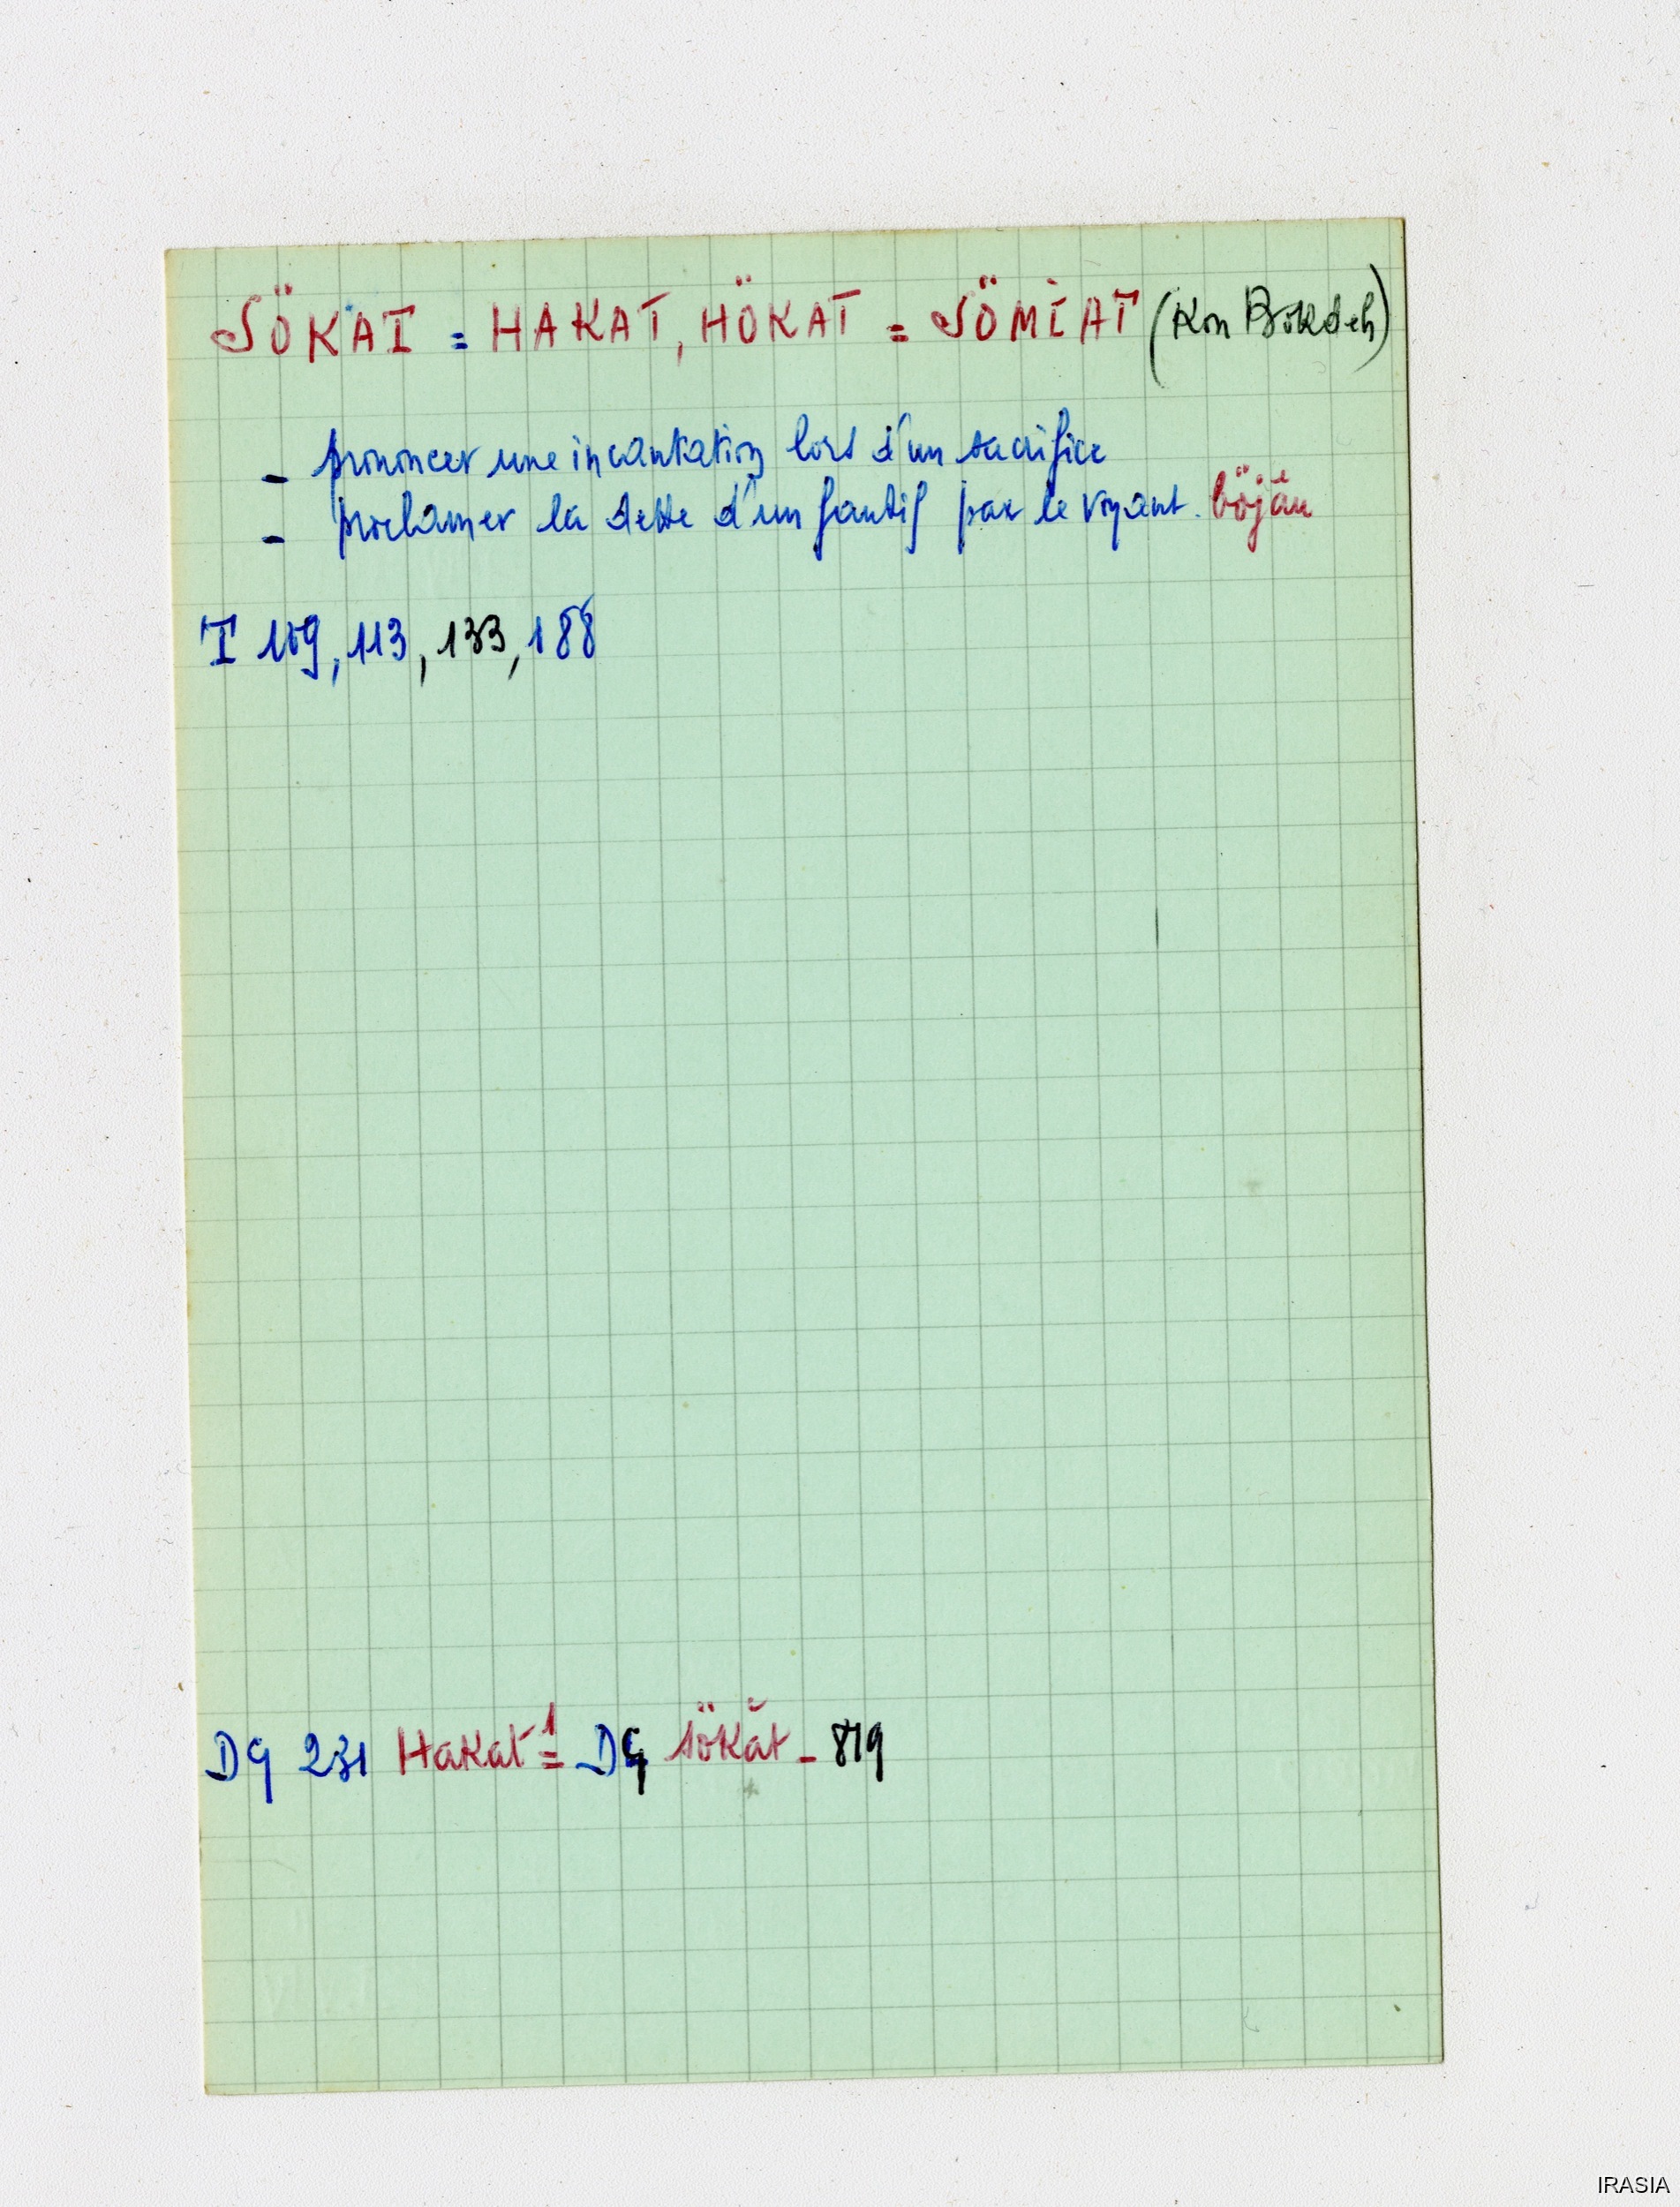 SÖKAT = HAKAT, HÖKAT = SÖMĔAT (Kon Bökdeh)
- prononcer une incantation lors d'un sacrifice
- proclamer la dette d'un fautif par le voyant. böjău
I 109, 113, 133, 188
DG 231 Hakat¹ = DG sökăt - 819
IRASIA